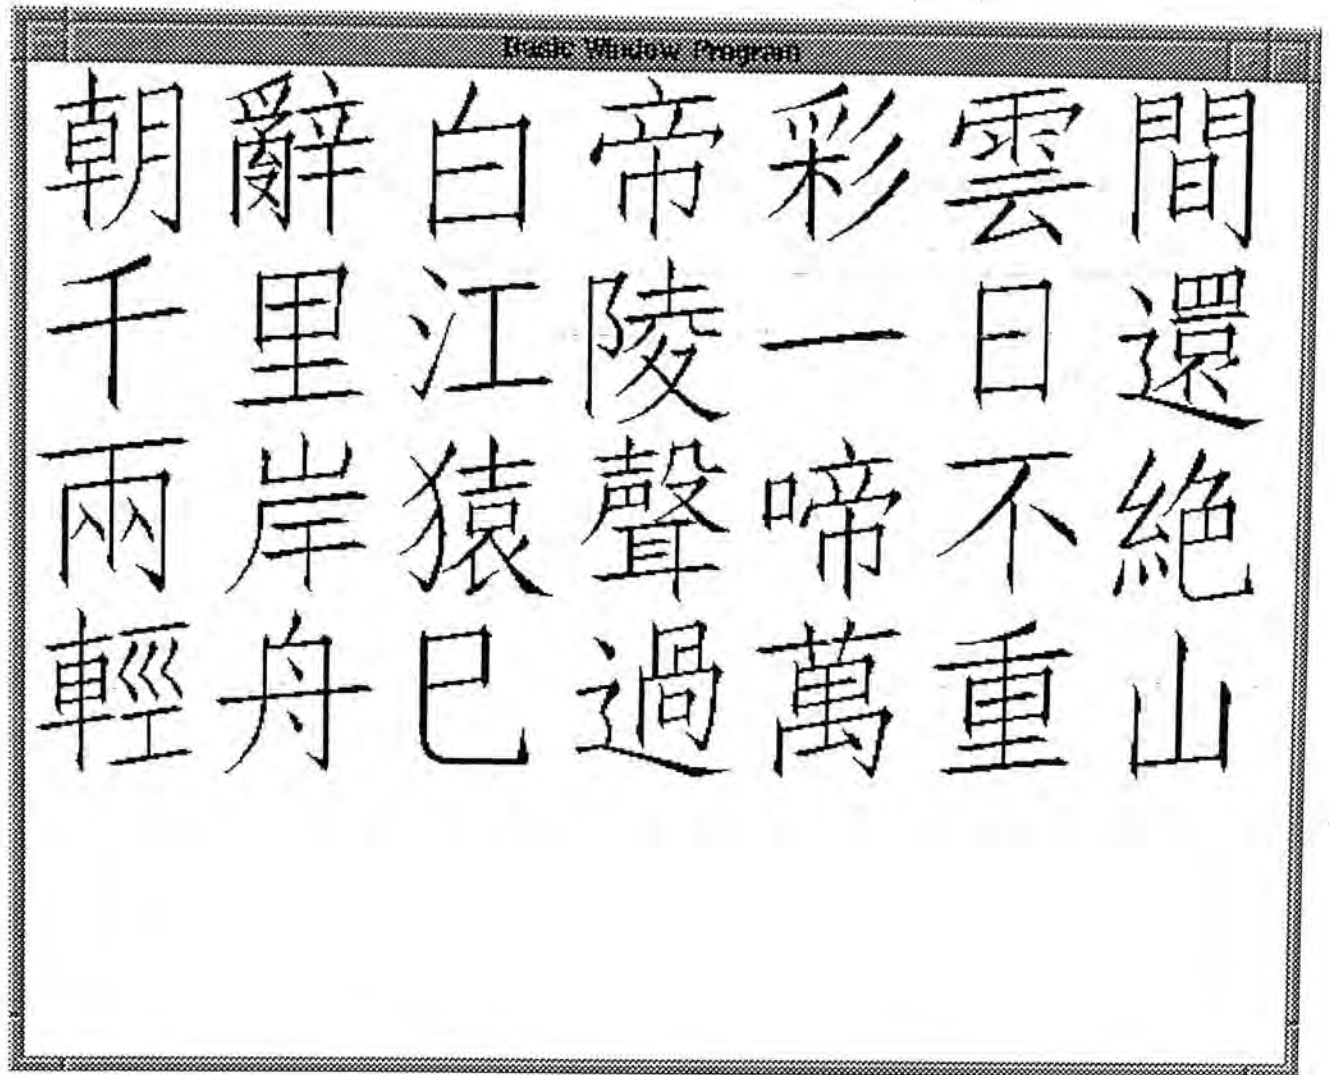 Basic Window Program
朝辭白帝彩雲間
千里江陵一日還
兩岸猿聲啼不絕
輕舟已過萬重山